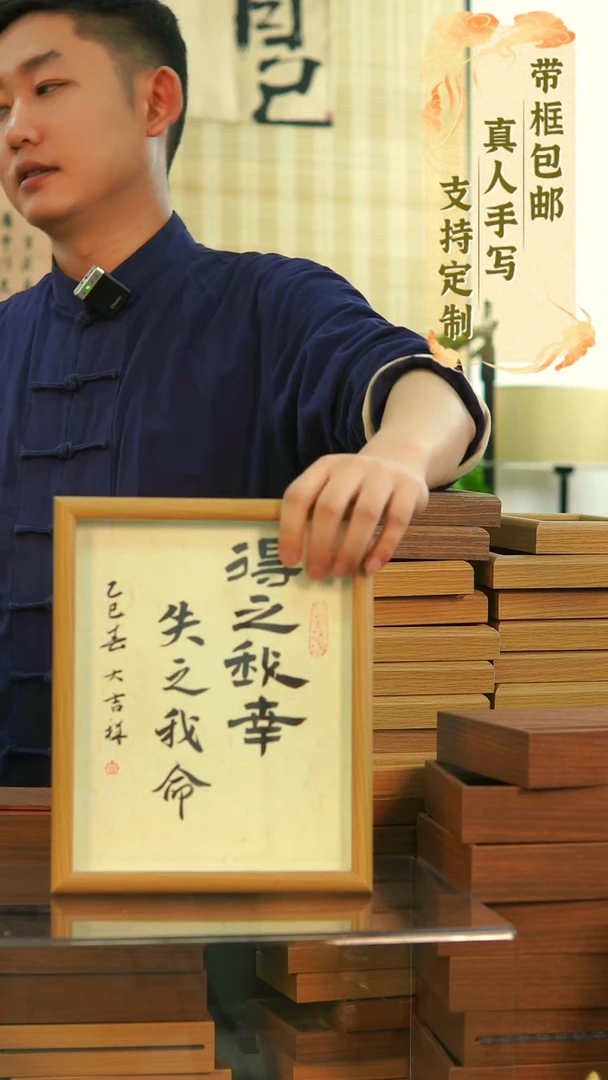 带框包邮
真人手写
支持定制
自己
得之我幸
失之我命
乙巳春 大吉祥